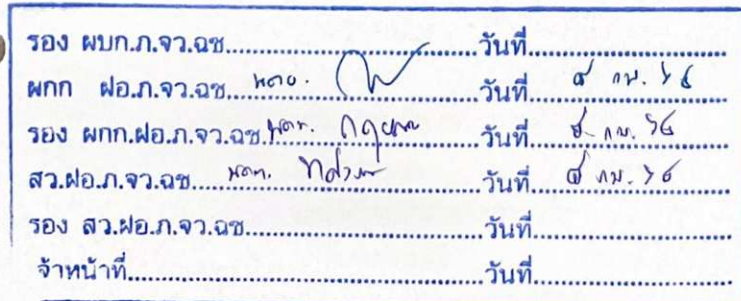 รอง ผบก.ภ.จว.ฉช..............................วันที่......................
ผกก ฝอ.ภ.จว.ฉช. พ.ต.อ. ..............................วันที่ ๘ ก.พ. ๖๘
รอง ผกก.ฝอ.ภ.จว.ฉช. พ.ต.ท. ..............................วันที่ ๘ ก.พ. ๖๘
สว.ฝอ.ภ.จว.ฉช. พ.ต.ท. ..............................วันที่ ๘ ก.พ. ๖๘
รอง สว.ฝอ.ภ.จว.ฉช..............................วันที่......................
จ้าหน้าที่..............................วันที่......................